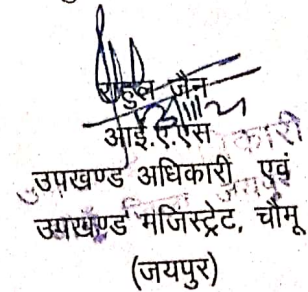 राहुल जैन
आई.ए.एस
उपखण्ड अधिकारी एवं
उपखण्ड मजिस्ट्रेट, चौमू
(जयपुर)